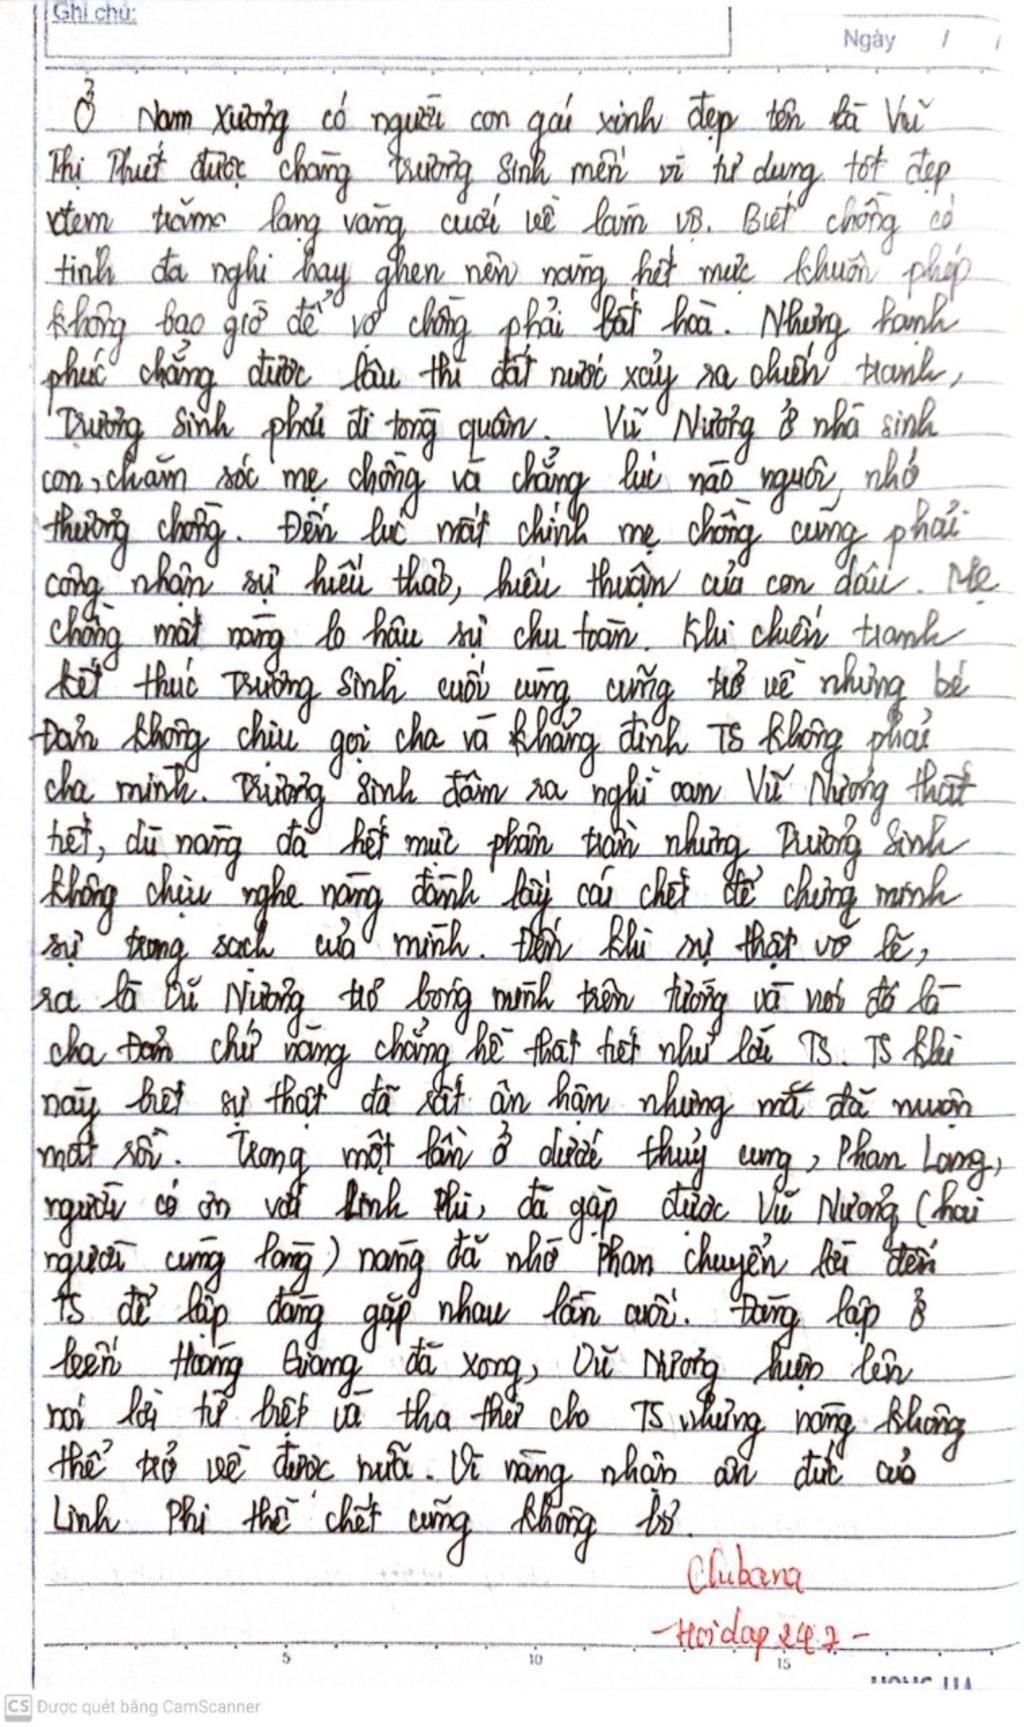 Ghi chú:
Ngày / /
Ở Nam Xương có người con gái xinh đẹp tên là Vũ
Thị Thiết được chàng Trương Sinh mến vì tư dung tốt đẹp
đem trăm lạng vàng cưới về làm vợ. Biết chồng có
tính đa nghi hay ghen nên nàng hết mực khuôn phép
không bao giờ để vợ chồng phải bất hoà. Nhưng hạnh
phúc chẳng được lâu thì đất nước xảy ra chiến tranh,
Trương Sinh phải đi tòng quân. Vũ Nương ở nhà sinh
con, chăm sóc mẹ chồng và chẳng lúc nào nguôi nhớ
thương chồng. Đến lúc mất chính mẹ chồng cũng phải
công nhận sự hiếu thảo, hiếu thuận của con dâu. Mẹ
chồng mất nàng lo hậu sự chu toàn. Khi chiến tranh
kết thúc Trương Sinh cuối cùng cũng trở về nhưng bé
Đản không chịu gọi cha và khẳng định TS không phải
cha mình. Trương Sinh đâm ra nghi oan Vũ Nương thất
tiết, dù nàng đã hết mực phân trần nhưng Trương Sinh
không chịu nghe nàng đành lấy cái chết để chứng minh
sự trong sạch của mình. Đến khi sự thật vỡ lẽ,
ra là Vũ Nương trỏ bóng mình trên tường và nói đó là
cha Đản chứ nàng chẳng hề thất tiết như lời TS. TS khi
này biết sự thật đã rất ân hận nhưng mà đã muộn
mất rồi. Trong một lần ở dưới thuỷ cung, Phan Lang,
người có ơn với Linh Phi, đã gặp được Vũ Nương (hai
người cùng làng) nàng đã nhờ Phan chuyển lời đến
TS để lập đàng gặp nhau lần cuối. Đàng lập ở
bến Hoàng Giang đã xong, Vũ Nương hiện lên
nói lời từ biệt và tha thứ cho TS nhưng nàng không
thể trở về được nữa. Vì nàng nhận ân đức của
Linh Phi thề chết cũng không bỏ.
Clubana
-Hoidap247-
5 10 15
CS Được quét bằng CamScanner